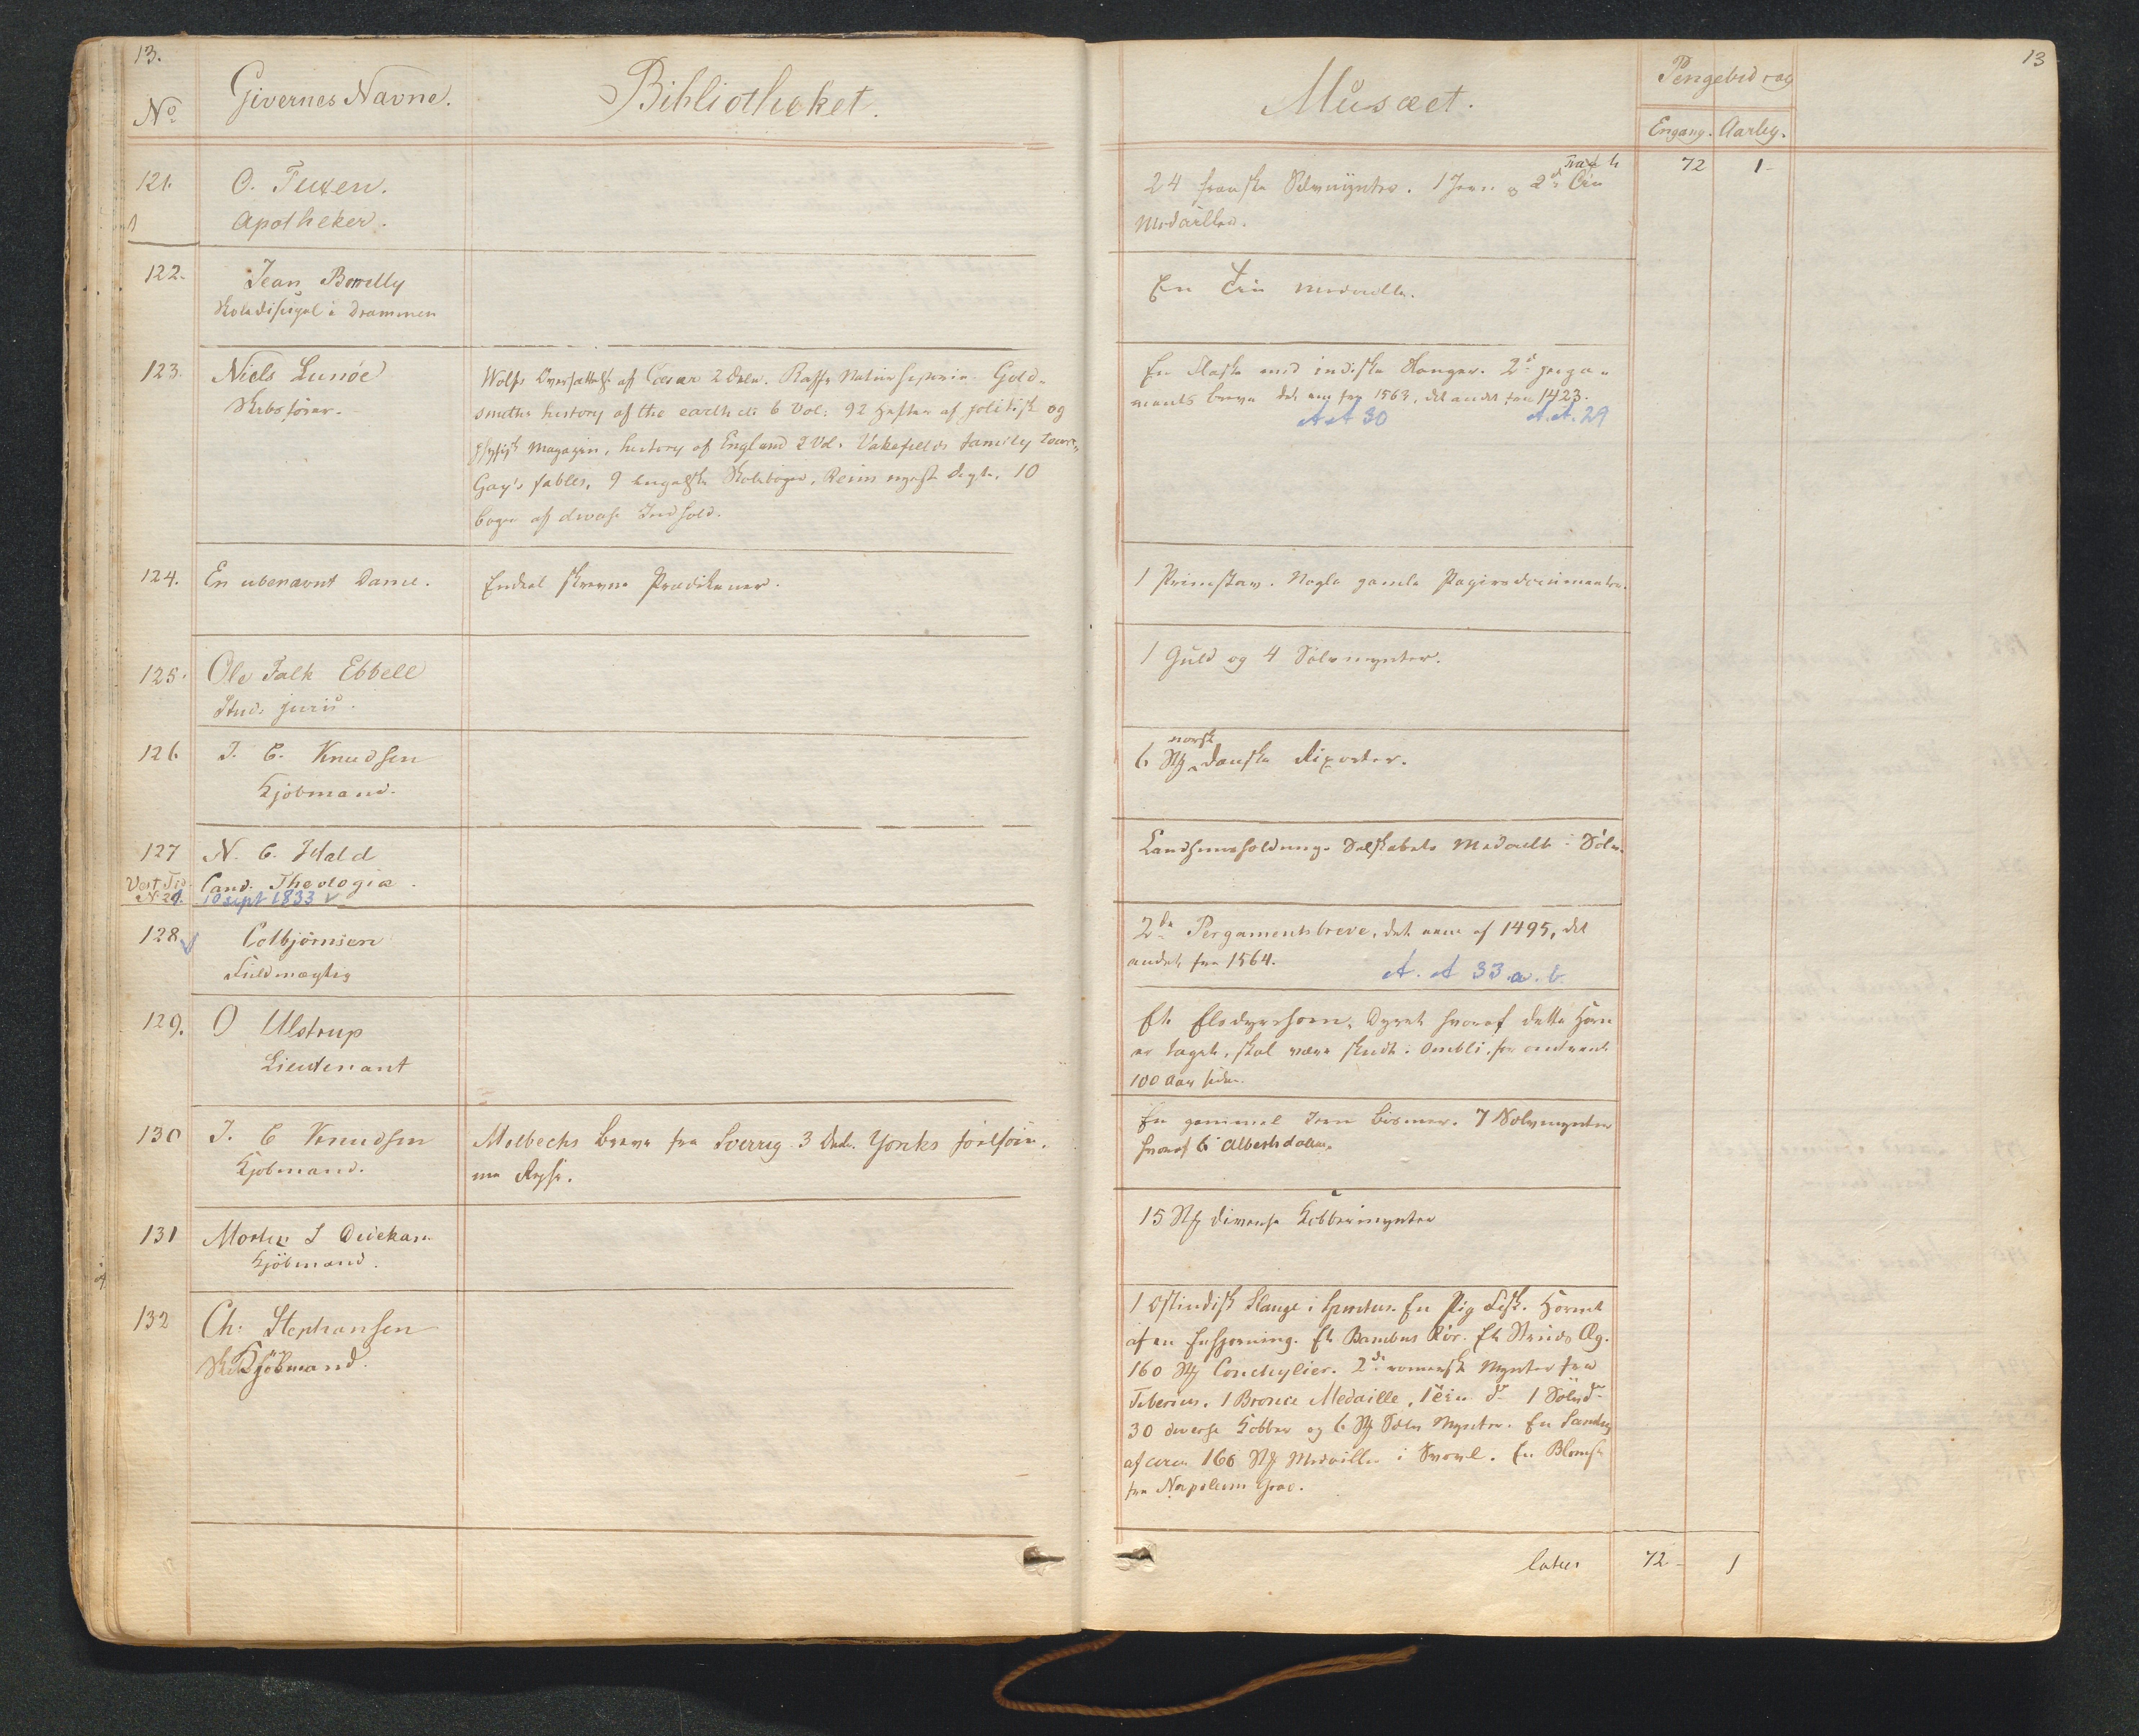 13.
13
No
Givernes Navne.
Bibliotheket.
Musæet.
Pengebidrag
Engang. Aarlig.
121.
O. Tuxen.
Apotheker.
24 franske Sølvmynter. 1 Jern og 2de Tin
Medailler.
72 1-
122.
Jean
i Drammen
En Tin Medaille.
123.
Niels Lunöe
Skibsfører.
Wolfs Oversættelse af Cæsar 2 Dele. Raffs Naturhistorie. Gold-
smiths history of the earth etc 6 Vol: 92 Hefter af politisk og
physisk Magazin, history of England 2 Vol. Vakefields family tour.
Gay's fables, 9 engelske Skolebøger, nyeste Digte, 10
bøger af diverse Indhold.
En Flaske med indiske Slanger. 2de perga-
ments breve det ene fra 1563, det andet fra 1423.
A A 30
A. A. 29
124.
En ubenævnt Dame.
Endeel skrevne Prædikener.
1 Primstav. Nogle gamle Papirsdocumenter.
125.
Ole Falk Ebbell
Stud: juris.
1 Guld og 4 Sölvmynter.
126
J. C. Knudsen
Kjøbmand.
norsk
6 Stk danske Rigsorter.
127
N. C. Hald
Cand: Theologiæ.
Vest. Tid
No 21.
10 sept 1833 v
Landhuusholdnings Selskabets Medaille i Sölv.
128
Colbjörnsen
Fuldmægtig
2de Pergamentsbreve, det ene af 1495, det
andet fra 1564.
A. A 33. a. b
129.
O Ulstrup
Lieutenant
Et Elsdyrshorn. Dyret hvoraf dette Horn
er taget, skal være skudt i Ombli for omtrent
100 Aar siden.
130
J. C Knudsen
Kjøbmand.
Molbechs Breve fra Sverrig 3 Dele. Yoricks følsom-
me Rejse.
En gammel Jern Bismer. 7 Sølvmynter
hvoraf 6 Albertsdaler.
131
Morten S
Kjöbmand.
15 Stk diverse Kobbermynter
132
Ch. Stephansen
Kjöbmand.
1 Ostindisk Slange i Spiritus. En Pig Fisk. Hornet
af en Enhjørning. Et Bambus Rör. Et Struds Æg.
160 Stk Conchylier. 2de romerske Mynter fra
Tiberius. 1 Bronce Medaille, 1 Tin do 1 Sölv do
30 diverse Kobber og 6 Stk Sølv Mynter. En Samling
af circa 160 Stk Medailler i Svovl. En Blomst
fra Napoleons Grav.
latus
72-
1